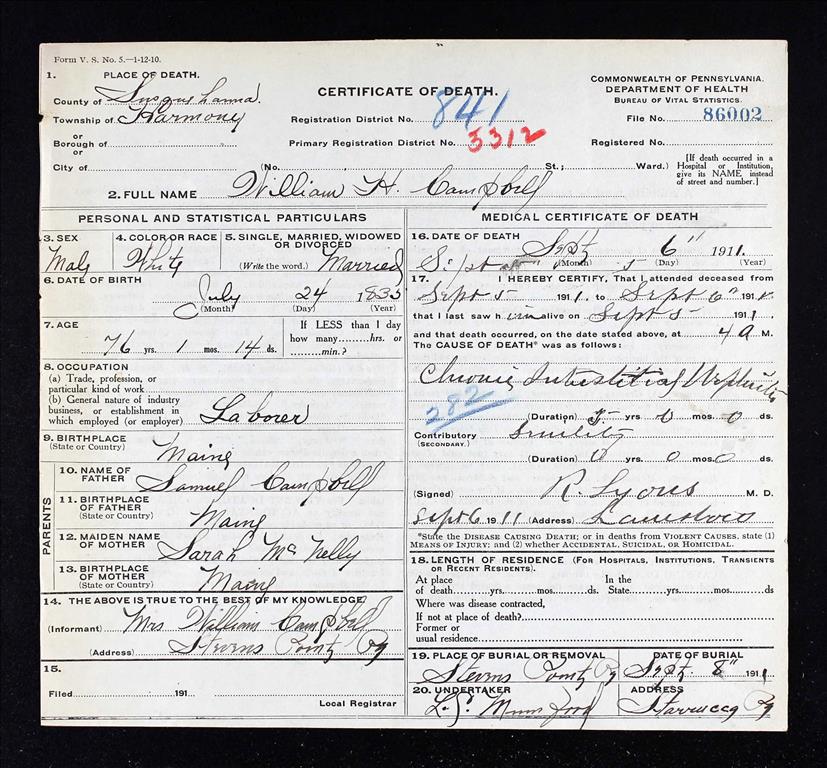 Form V. S. No. 5.—1-12-10.
1. PLACE OF DEATH.
County of Susquehanna.
Township of Harmony
or
Borough of
or
City of
CERTIFICATE OF DEATH.
Registration District No. 841
Primary Registration District No. 3312
(No. St.; Ward.)
COMMONWEALTH OF PENNSYLVANIA.
DEPARTMENT OF HEALTH
BUREAU OF VITAL STATISTICS.
File No. 86002
Registered No.
[If death occurred in a Hospital or Institution, give its NAME instead of street and number.]
2. FULL NAME William H. Campbell
PERSONAL AND STATISTICAL PARTICULARS
3. SEX
Male
4. COLOR OR RACE
White
5. SINGLE, MARRIED, WIDOWED OR DIVORCED
(Write the word.) Married
6. DATE OF BIRTH
July 24 1835
(Month) (Day) (Year)
7. AGE
76 yrs. 1 mos. 14 ds.
If LESS than I day
how many hrs. or
min.?
8. OCCUPATION
(a) Trade, profession, or
particular kind of work
(b) General nature of industry
business, or establishment in
which employed (or employer) Laborer
9. BIRTHPLACE
(State or Country) Maine
PARENTS
10. NAME OF
FATHER Samuel Campbell
11. BIRTHPLACE
OF FATHER
(State or Country) Maine
12. MAIDEN NAME
OF MOTHER Sarah McNelly
13. BIRTHPLACE
OF MOTHER
(State or Country) Maine
14. THE ABOVE IS TRUE TO THE BEST OF MY KNOWLEDGE
(Informant) Mrs William Campbell
(Address) Stevens Point Pa
15.
Filed 191
Local Registrar
MEDICAL CERTIFICATE OF DEATH
16. DATE OF DEATH
Sept 6" 1911.
(Month) (Day) (Year)
17. I HEREBY CERTIFY, That I attended deceased from
Sept 5 1911. to Sept 6" 1911
that I last saw him alive on Sept 5 1911
and that death occurred, on the date stated above, at 4 a M.
The CAUSE OF DEATH* was as follows:
Chronic Interstitial Nephritis
282
(Duration) 5 yrs 0 mos. 0 ds.
Contributory Senility
(SECONDARY.)
(Duration) 0 yrs. 0 mos. 0 ds.
(Signed) R. Lyons M. D.
Sept 6 1911 (Address)
*State the DISEASE CAUSING DEATH; or in deaths from VIOLENT CAUSES, state (1)
MEANS OF INJURY; and (2) whether ACCIDENTAL, SUICIDAL, OR HOMICIDAL.
18. LENGTH OF RESIDENCE (FOR HOSPITALS, INSTITUTIONS, TRANSIENTS
OR RECENT RESIDENTS).
At place In the
of death yrs. mos. ds. State yrs. mos. ds.
Where was disease contracted,
If not at place of death?
Former or
usual residence
19. PLACE OF BURIAL OR REMOVAL
Stevens Point Pa
DATE OF BURIAL
Sept 8" 1911
20. UNDERTAKER
ADDRESS
Starrucca Pa